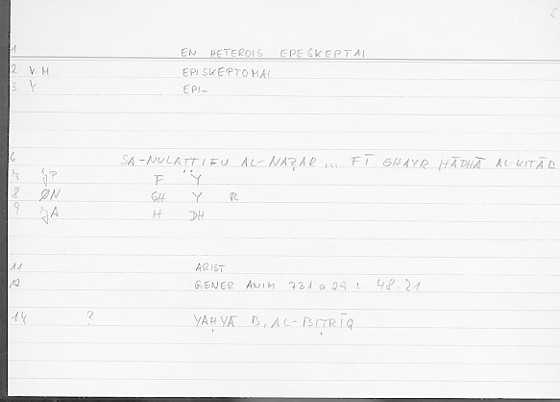 1 EN HETEROIS EPESKEPTAI
2 V.M EPISKEPTOMAI
3 Y EPI-
6 SA-NULAṬṬIFU AL-NAẒAR ... FĪ GHAYR HĀDHĀ AL-KITĀB
7 JP F Y
8 ØN GH Y R
9 JA H DH
11 ARIST
12 GENER ANIM 731 a 29 : 48.21
14 ? YAḤYĀ B. AL-BIṬRĪQ